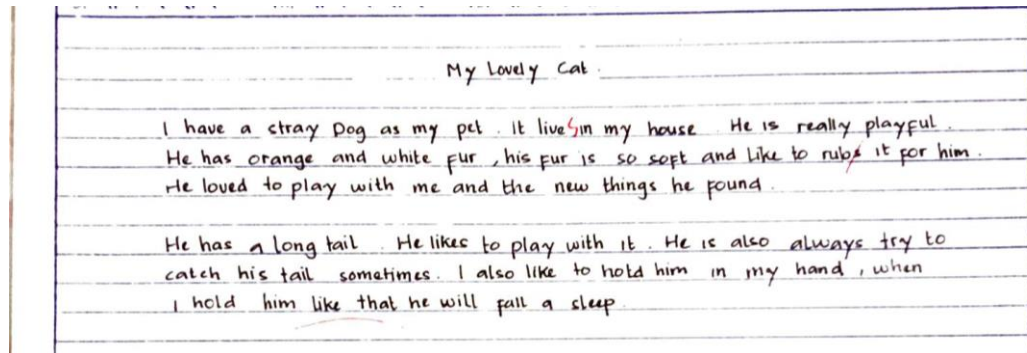 My Lovely Cat.
I have a stray Dog as my pet. it lives in my house. He is really playful.
He has orange and white fur, his fur is so soft and like to rubs it for him.
He loved to play with me and the new things he found.
He has a long tail. He likes to play with it. He is also always try to
catch his tail sometimes. I also like to hold him in my hand, when
I hold him like that he will fall a sleep.